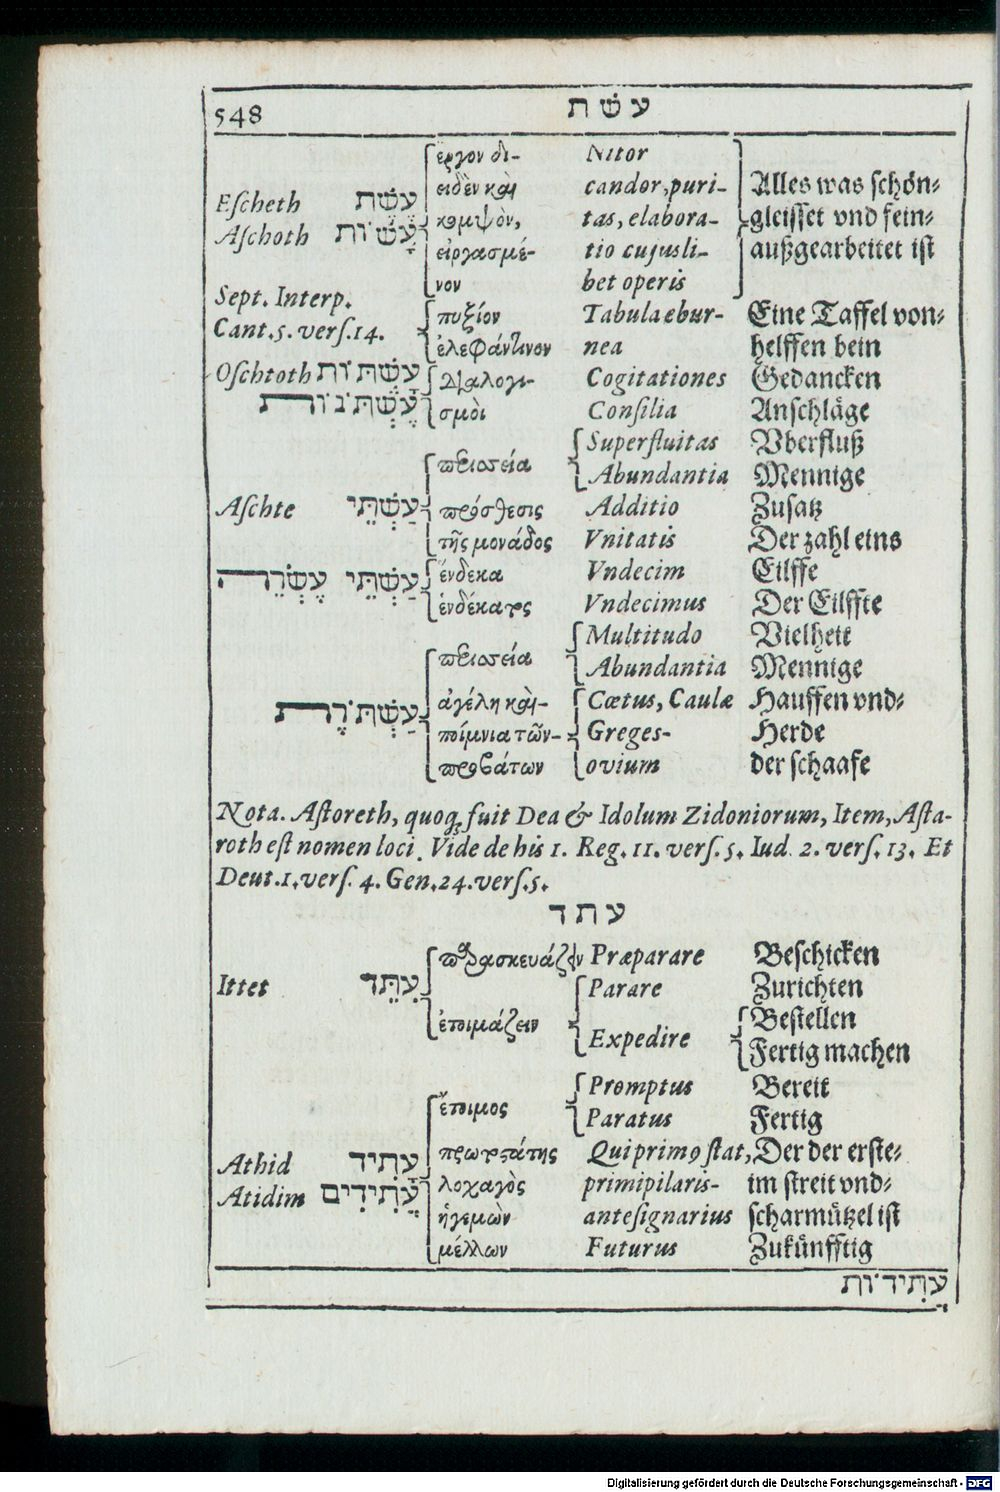 548 עשת
ἔργον δι- Nitor
Eſcheth עֶשֶׁת ειδὲν καὶ candor, puri- Alles was ſchön-
Aſchoth עָשׁוֹת κομψὸν, tas, elabora- gleiſſet vnd fein-
εἰργασμέ- tio cujusli- außgearbeitet iſt
νον bet operis
Sept. Interp. πυξίον Tabula ebur- Eine Taffel von-
Cant. 5. verſ. 14. ἐλεφάντινον nea helffen bein
Oſchtoth עֶשְׁתּוֹת διαλογι- Cogitationes Gedancken
עֶשְׁתֹּנוֹת σμοὶ Conſilia Anſchläge
Superfluitas Vberfluß
περισσεία Abundantia Mennige
Aſchte עַשְׁתֵּי πρόσθεσις Additio Zuſatz
τῆς μονάδος Vnitatis Der zahl eins
עַשְׁתֵּי עֶשְׂרֵה ἕνδεκα Vndecim Eilffe
ἑνδέκατος Vndecimus Der Eilffte
Multitudo Vielheit
περισσεία Abundantia Mennige
עַשְׁתֹּרֶת ἀγέλη καὶ- Cœtus, Caulæ Hauffen vnd-
ποίμνια τῶν- Greges- Herde
προβάτων ovium der ſchaafe
Nota. Aſtoreth, quoq; fuit Dea & Idolum Zidoniorum, Item, Aſta-
roth eſt nomen loci. Vide de his 1. Reg. 11. verſ. 5. Iud. 2. verſ. 13. Et
Deut. 1. verſ. 4. Gen. 24. verſ. 5.
עתד
παρασκευάζειν Præparare Beſchicken
Ittet עִתֵּד Parare Zurichten
ἑτοιμάζειν Expedire Beſtellen
Fertig machen
Promptus Bereit
ἕτοιμος Paratus Fertig
πρωτοστάτης Qui primo ſtat, Der der erſte-
Athid עָתִיד λοχαγὸς primipilaris- im ſtreit vnd-
Atidim עֲתִידִים ἡγεμὼν anteſignarius ſcharmützel iſt
μέλλων Futurus Zukünfftig
עֲתִידוֹת
Digitalisierung gefördert durch die Deutsche Forschungsgemeinschaft - DFG